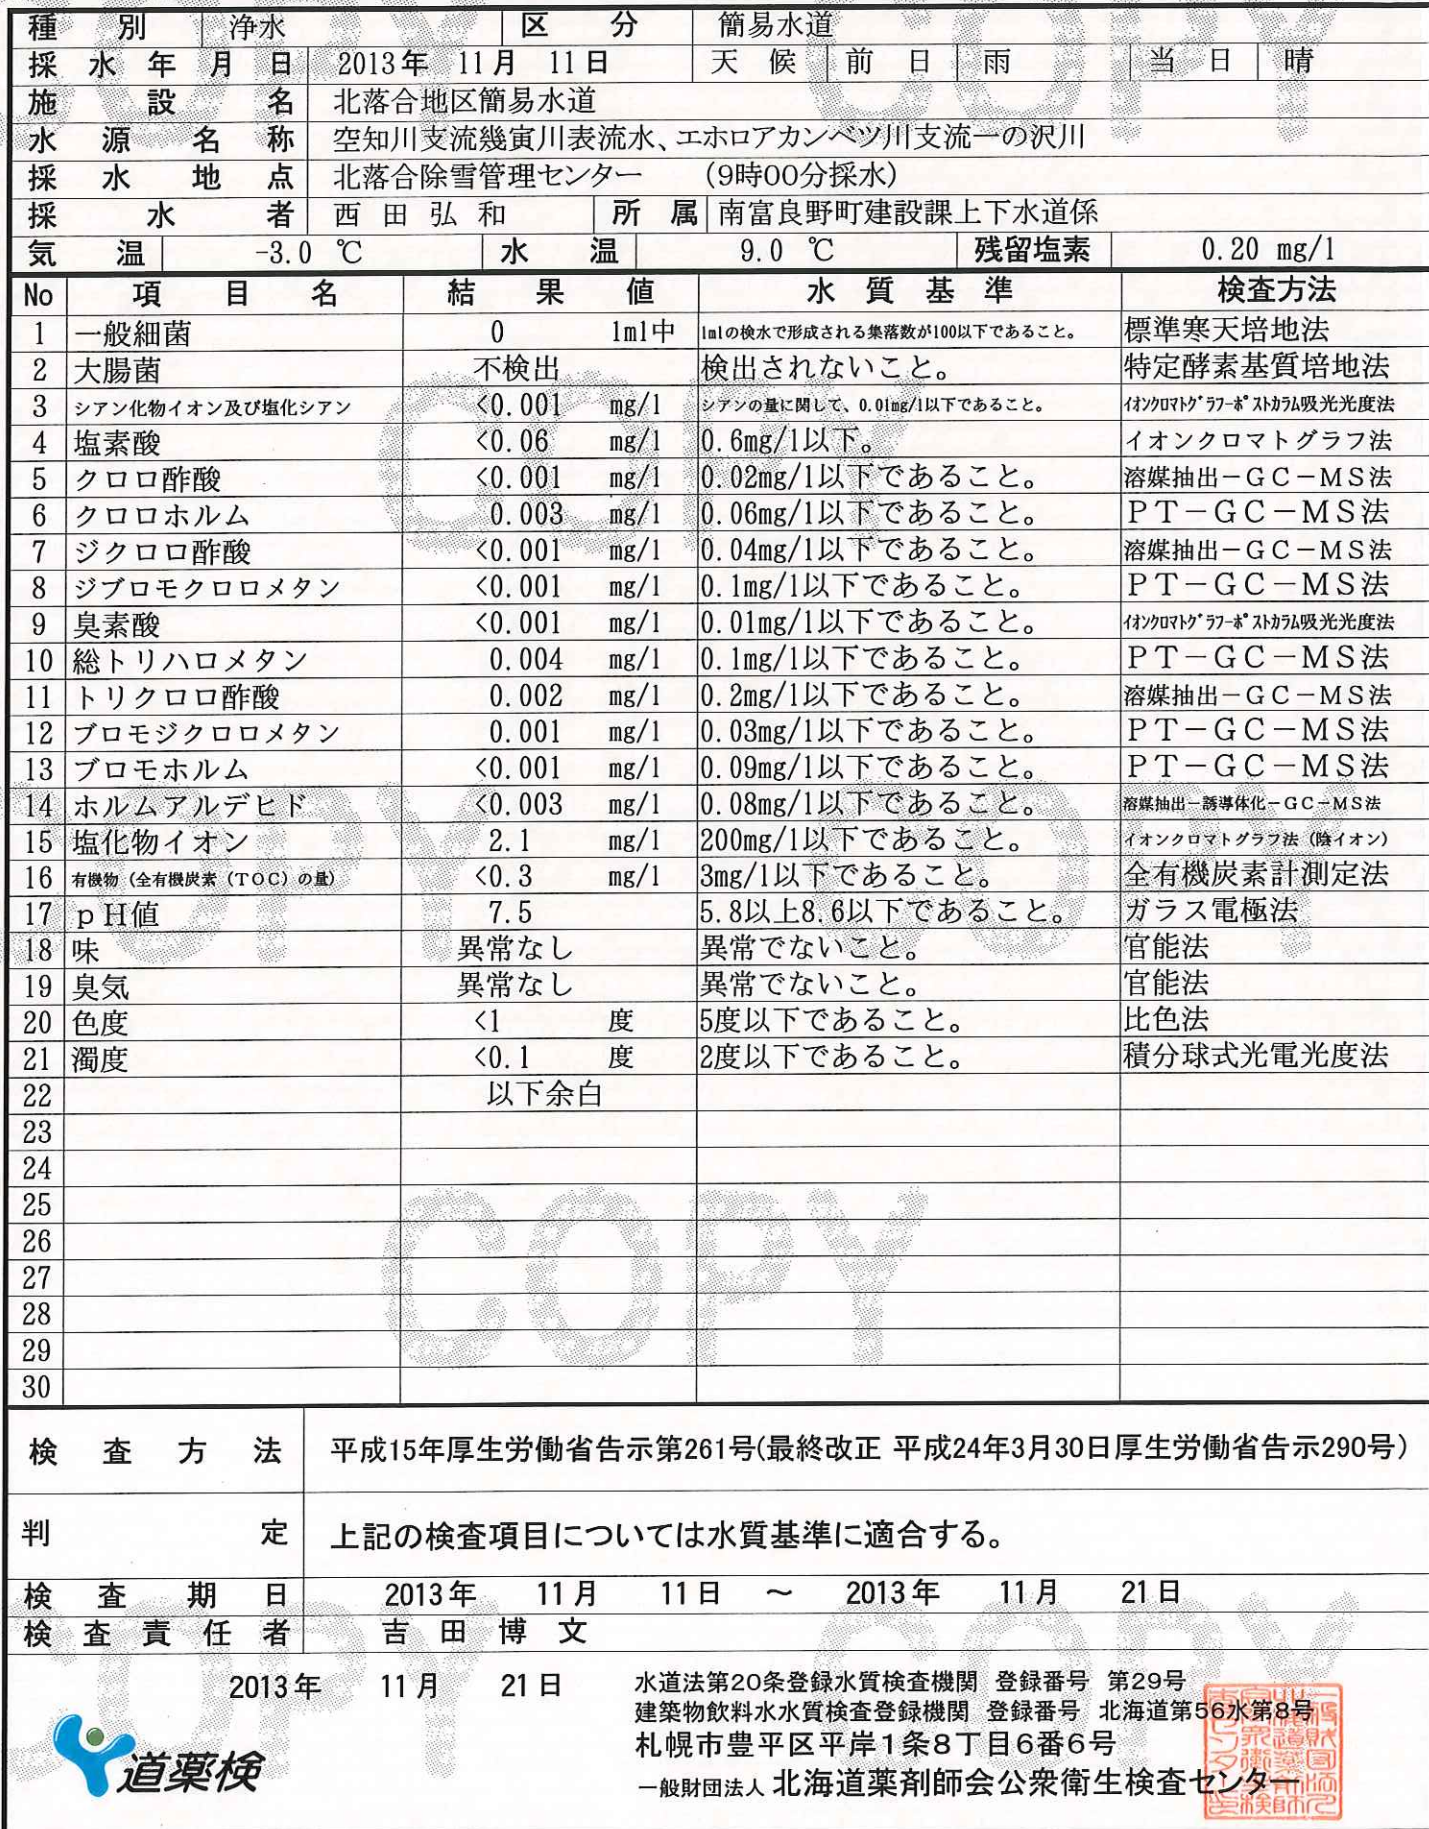 種別 浄水 区分 簡易水道
採水年月日 2013年 11月 11日 天候 前日 雨 当日 晴
施設名 北落合地区簡易水道
水源名称 空知川支流幾寅川表流水、エホロアカンベツ川支流一の沢川
採水地点 北落合除雪管理センター (9時00分採水)
採水者 西田弘和 所属 南富良野町建設課上下水道係
気温 -3.0 ℃ 水温 9.0 ℃ 残留塩素 0.20 mg/l
No 項目名 結果値 水質基準 検査方法
1 一般細菌 0 1ml中 1mlの検水で形成される集落数が100以下であること。 標準寒天培地法
2 大腸菌 不検出 検出されないこと。 特定酵素基質培地法
3 シアン化物イオン及び塩化シアン <0.001 mg/l シアンの量に関して、0.01mg/l以下であること。 イオンクロマトグラフーポストカラム吸光光度法
4 塩素酸 <0.06 mg/l 0.6mg/l以下。 イオンクロマトグラフ法
5 クロロ酢酸 <0.001 mg/l 0.02mg/l以下であること。 溶媒抽出-GC-MS法
6 クロロホルム 0.003 mg/l 0.06mg/l以下であること。 PT-GC-MS法
7 ジクロロ酢酸 <0.001 mg/l 0.04mg/l以下であること。 溶媒抽出-GC-MS法
8 ジブロモクロロメタン <0.001 mg/l 0.1mg/l以下であること。 PT-GC-MS法
9 臭素酸 <0.001 mg/l 0.01mg/l以下であること。 イオンクロマトグラフーポストカラム吸光光度法
10 総トリハロメタン 0.004 mg/l 0.1mg/l以下であること。 PT-GC-MS法
11 トリクロロ酢酸 0.002 mg/l 0.2mg/l以下であること。 溶媒抽出-GC-MS法
12 ブロモジクロロメタン 0.001 mg/l 0.03mg/l以下であること。 PT-GC-MS法
13 ブロモホルム <0.001 mg/l 0.09mg/l以下であること。 PT-GC-MS法
14 ホルムアルデヒド <0.003 mg/l 0.08mg/l以下であること。 溶媒抽出-誘導体化-GC-MS法
15 塩化物イオン 2.1 mg/l 200mg/l以下であること。 イオンクロマトグラフ法(陰イオン)
16 有機物(全有機炭素(TOC)の量) <0.3 mg/l 3mg/l以下であること。 全有機炭素計測定法
17 pH値 7.5 5.8以上8.6以下であること。 ガラス電極法
18 味 異常なし 異常でないこと。 官能法
19 臭気 異常なし 異常でないこと。 官能法
20 色度 <1 度 5度以下であること。 比色法
21 濁度 <0.1 度 2度以下であること。 積分球式光電光度法
22 以下余白
23
24
25
26
27
28
29
30
検査方法 平成15年厚生労働省告示第261号(最終改正 平成24年3月30日厚生労働省告示290号)
判定 上記の検査項目については水質基準に適合する。
検査期日 2013年 11月 11日 ～ 2013年 11月 21日
検査責任者 吉田博文
2013年 11月 21日
水道法第20条登録水質検査機関 登録番号 第29号
建築物飲料水水質検査登録機関 登録番号 北海道第56水第8号
札幌市豊平区平岸1条8丁目6番6号
一般財団法人 北海道薬剤師会公衆衛生検査センター
道薬検
COPY
COPY
COPY
COPY
COPY
COPY
COPY
COPY